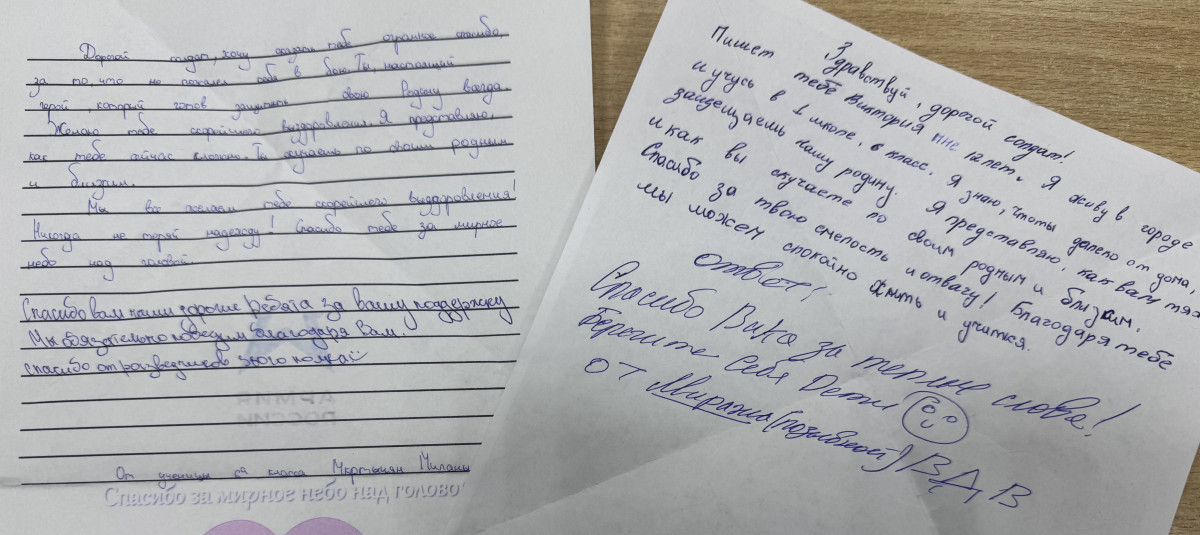 Дорогой солдат, хочу сказать тебе огромное спасибо,
за то, что не пожалел себя в бою. Ты, настоящий
герой, который готов защищать свою Родину всегда.
Желаю тебе скорейшего выздоровления. Я представляю,
как тебе сейчас сложно. Ты скучаешь по своим родным
и близким.
Мы все желаем тебе скорейшего выздоровления!
Никогда не теряй надежду! Спасибо тебе за мирное
небо над головой.
Спасибо вам наши дорогие Ребята за вашу поддержку
Мы обязательно победим благодаря Вам.
спасибо от разведчиков 310го полка
АРМИЯ
РОССИИ
От ученицы класса Мкртычян Миланы
Спасибо за мирное небо над голово
Здравствуй, дорогой солдат!
Пишет тебе Виктория мне 12 лет. Я живу в городе
и учусь в 1 школе, 6 класс. Я знаю, что ты далеко от дома,
защищаешь нашу родину. Я представляю, как вам тяж
и как вы скучаете по своим родным и близким.
Спасибо за твою смелость и отвагу! Благодаря тебе
мы можем спокойно жить и учиться.
ответ:
Спасибо Вика за теплые слова!
Берегите себя Дети
от Миража (позывной) ВДВ